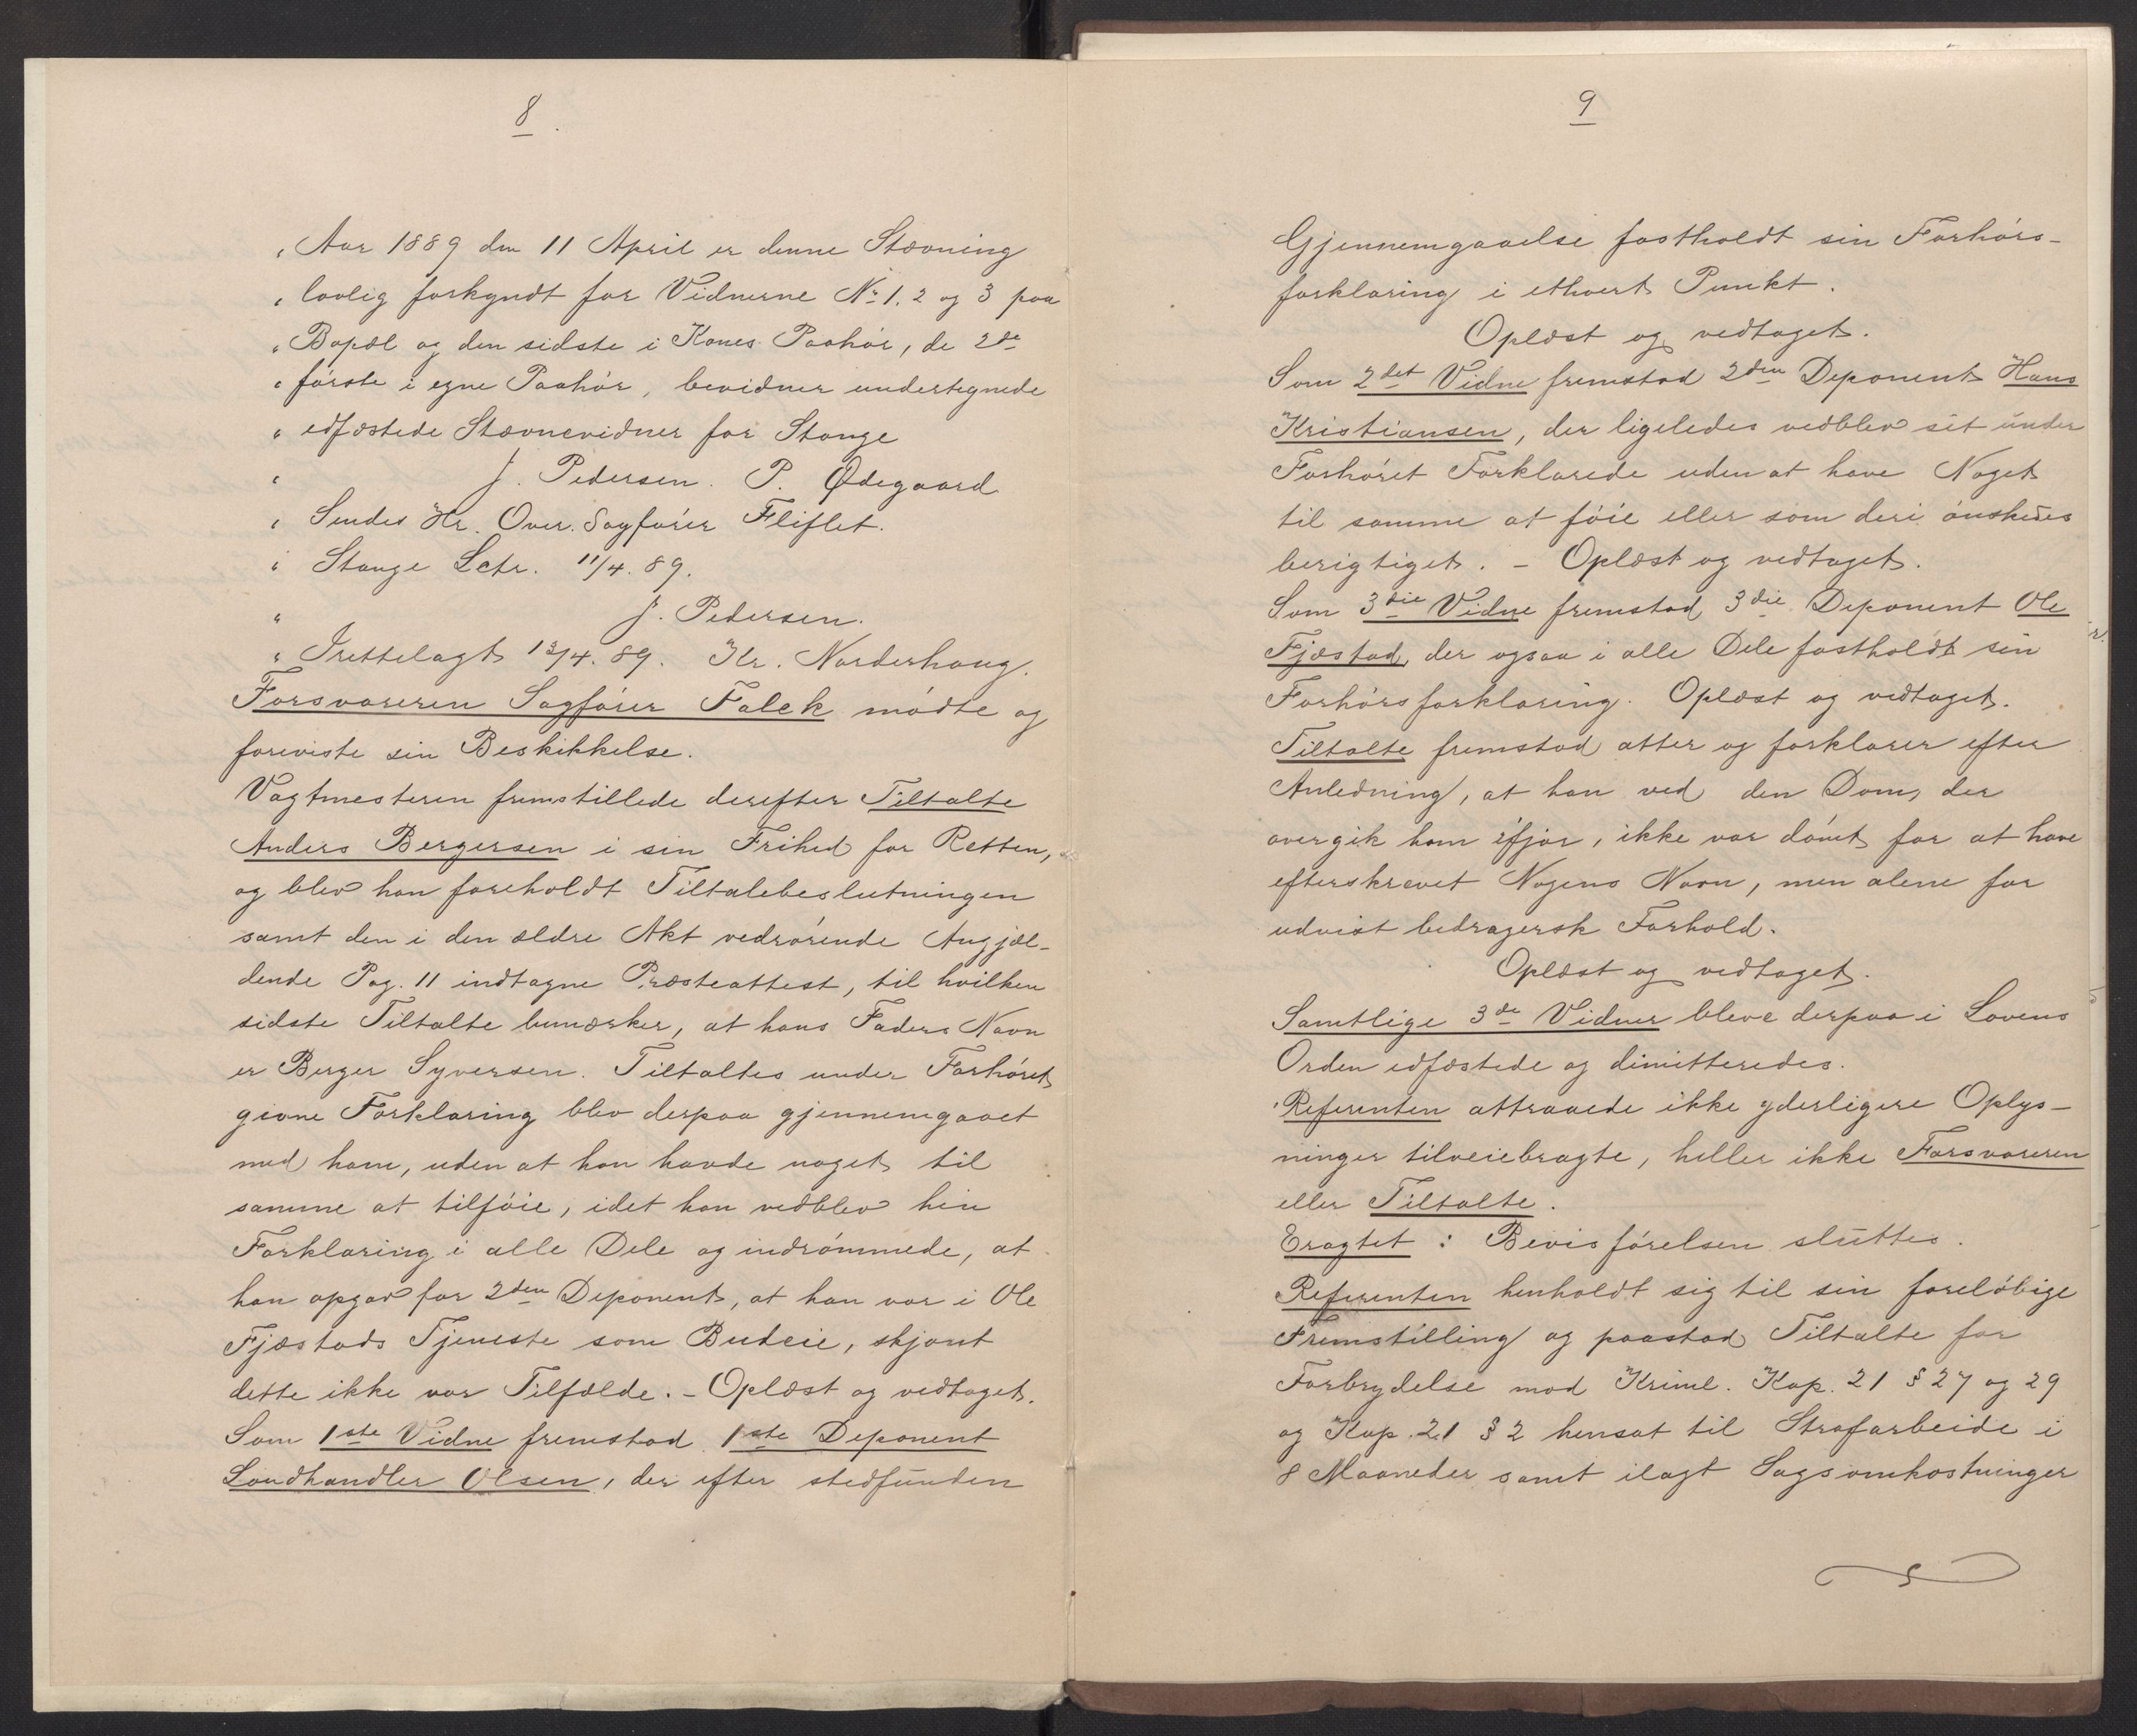 8
„ Aar 1889 den 11 April er denne Stævning
„ lovlig forkyndt for Vidnerne No 1. 2 og 3 paa
„ Bopæl og den sidste i Kones Paahør, de 2de
„ første i egne Paahør, bevidner undertegnede
„ edfæstede Stævnevidner for Stange
„ J. Pedersen. P. Ødegaard
„ Sendes Hr. Over. Sagfører Fliflet.
„ Stange Lctr. 11/4. 89.
„ J. Pedersen.
„ Irettelagt 13/4. 89. Kr. Norderhoug.
Forsvareren Sagfører Falck mødte og
foreviste sin Beskikkelse.
Vagtmesteren fremstillede derefter Tiltalte
Anders Bergersen i sin Frihed for Retten,
og blev han foreholdt Tiltalebeslutningen
samt den i den ældre Akt vedrørende Angjæl-
dende Pag. 11 indtagne Præsteattest, til hvilken
sidste Tiltalte bemærker, at hans Faders Navn
er Berger Syversen. Tiltaltes under Forhøret
givne Forklaring blev derpaa gjennemgaaet
med ham, uden at han havde noget til
samme at tilføie, idet han vedblev hin
Forklaring i alle Dele og indrømmede, at
han opgav for 2den Deponent, at han var i Ole
Fjæstads Tjeneste som Budeie, skjønt
dette ikke var Tilfælde. – Oplæst og vedtaget.
Som 1ste Vidne fremstod 1ste Deponent
Landhandler Olsen, der efter stedfunden
9
Gjennemgaaelse fastholdt sin Forhørs-
forklaring i ethvert Punkt.
Oplæst og vedtaget.
Som 2det Vidne fremstod 2den Deponent Hans
Kristiansen, der ligeledes vedblev sit under
Forhøret Forklarede uden at have Noget
til samme at føie eller som deri ønskedes
berigtiget. – Oplæst og vedtaget.
Som 3die Vidne fremstod 3die Deponent Ole
Fjæstad, der ogsaa i alle Dele fastholdt sin
Forhørsforklaring. Oplæst og vedtaget.
Tiltalte fremstod atter og forklarer efter
Anledning, at han ved den Dom, der
overgik ham ifjor, ikke var dømt for at have
efterskrevet Nogens Navn, men alene for
udvist bedragersk Forhold.
Oplæst og vedtaget.
Samtlige 3de Vidner bleve derpaa i Lovens
Orden edfæstede og dimitteredes.
Referenten attraaede ikke yderligere Oplys-
ninger tilveiebragte, heller ikke Forsvareren
eller Tiltalte.
Eragtet: Bevisførelsen sluttes.
Referenten henholdt sig til sin foreløbige
Fremstilling og paastod Tiltalte for
Forbrydelse mod Kriml. Kap. 21 § 27 og 29
og Kap. 21 § 2 hensat til Strafarbeide i
8 Maaneder samt ilagt Sagsomkostninger